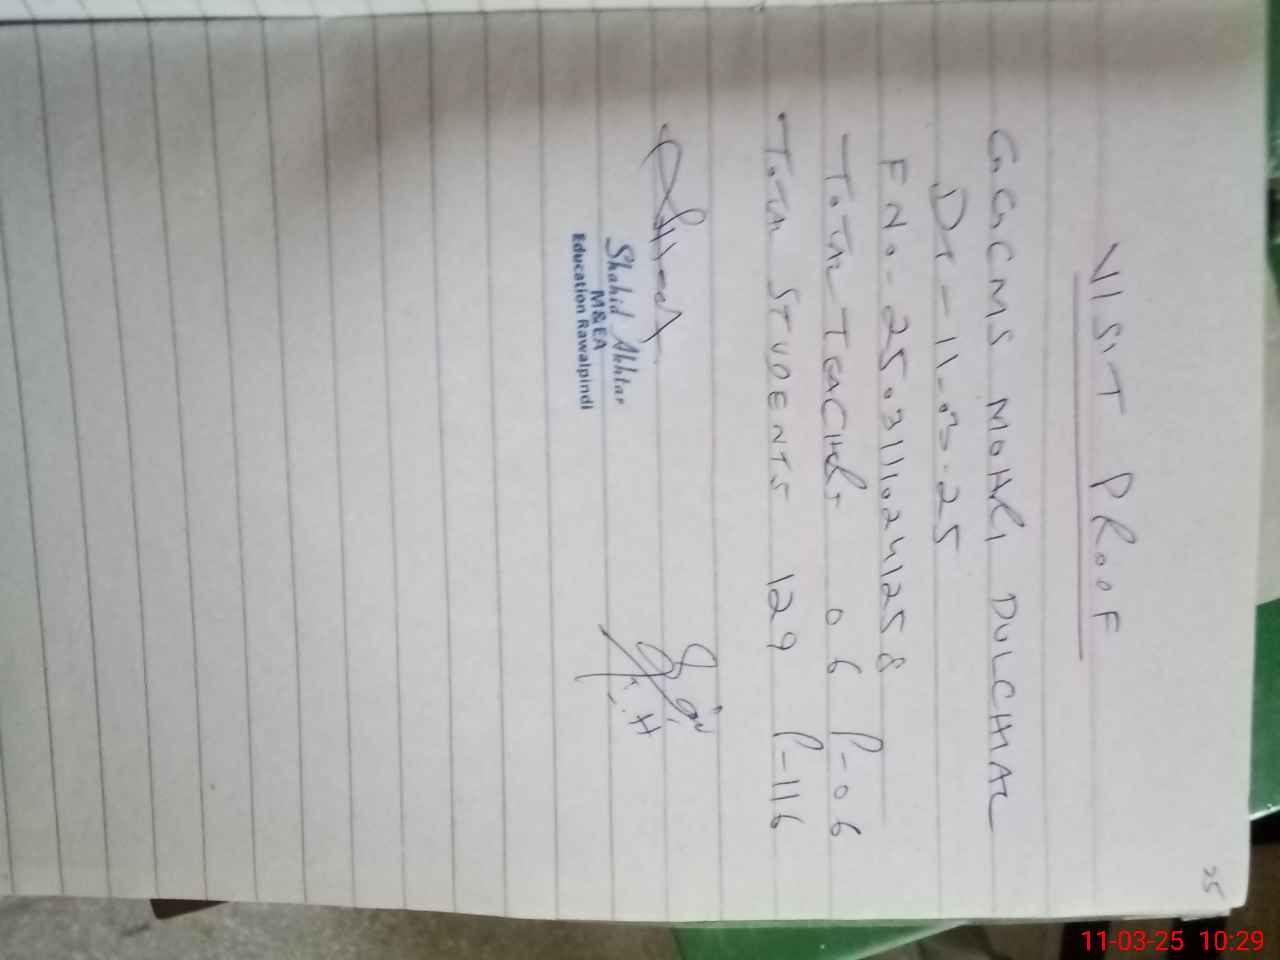 25
VISIT PROOF
GGCMS MOHRI DULCHHAL
DT-11-03-25
F No-250311102412 58
TOTAL TEACHERS 06 P-06
TOTAL STUDENTS 129 P-116
Shahid Akhtar
M&EA
Education Rawalpindi
11-03-25 10:29